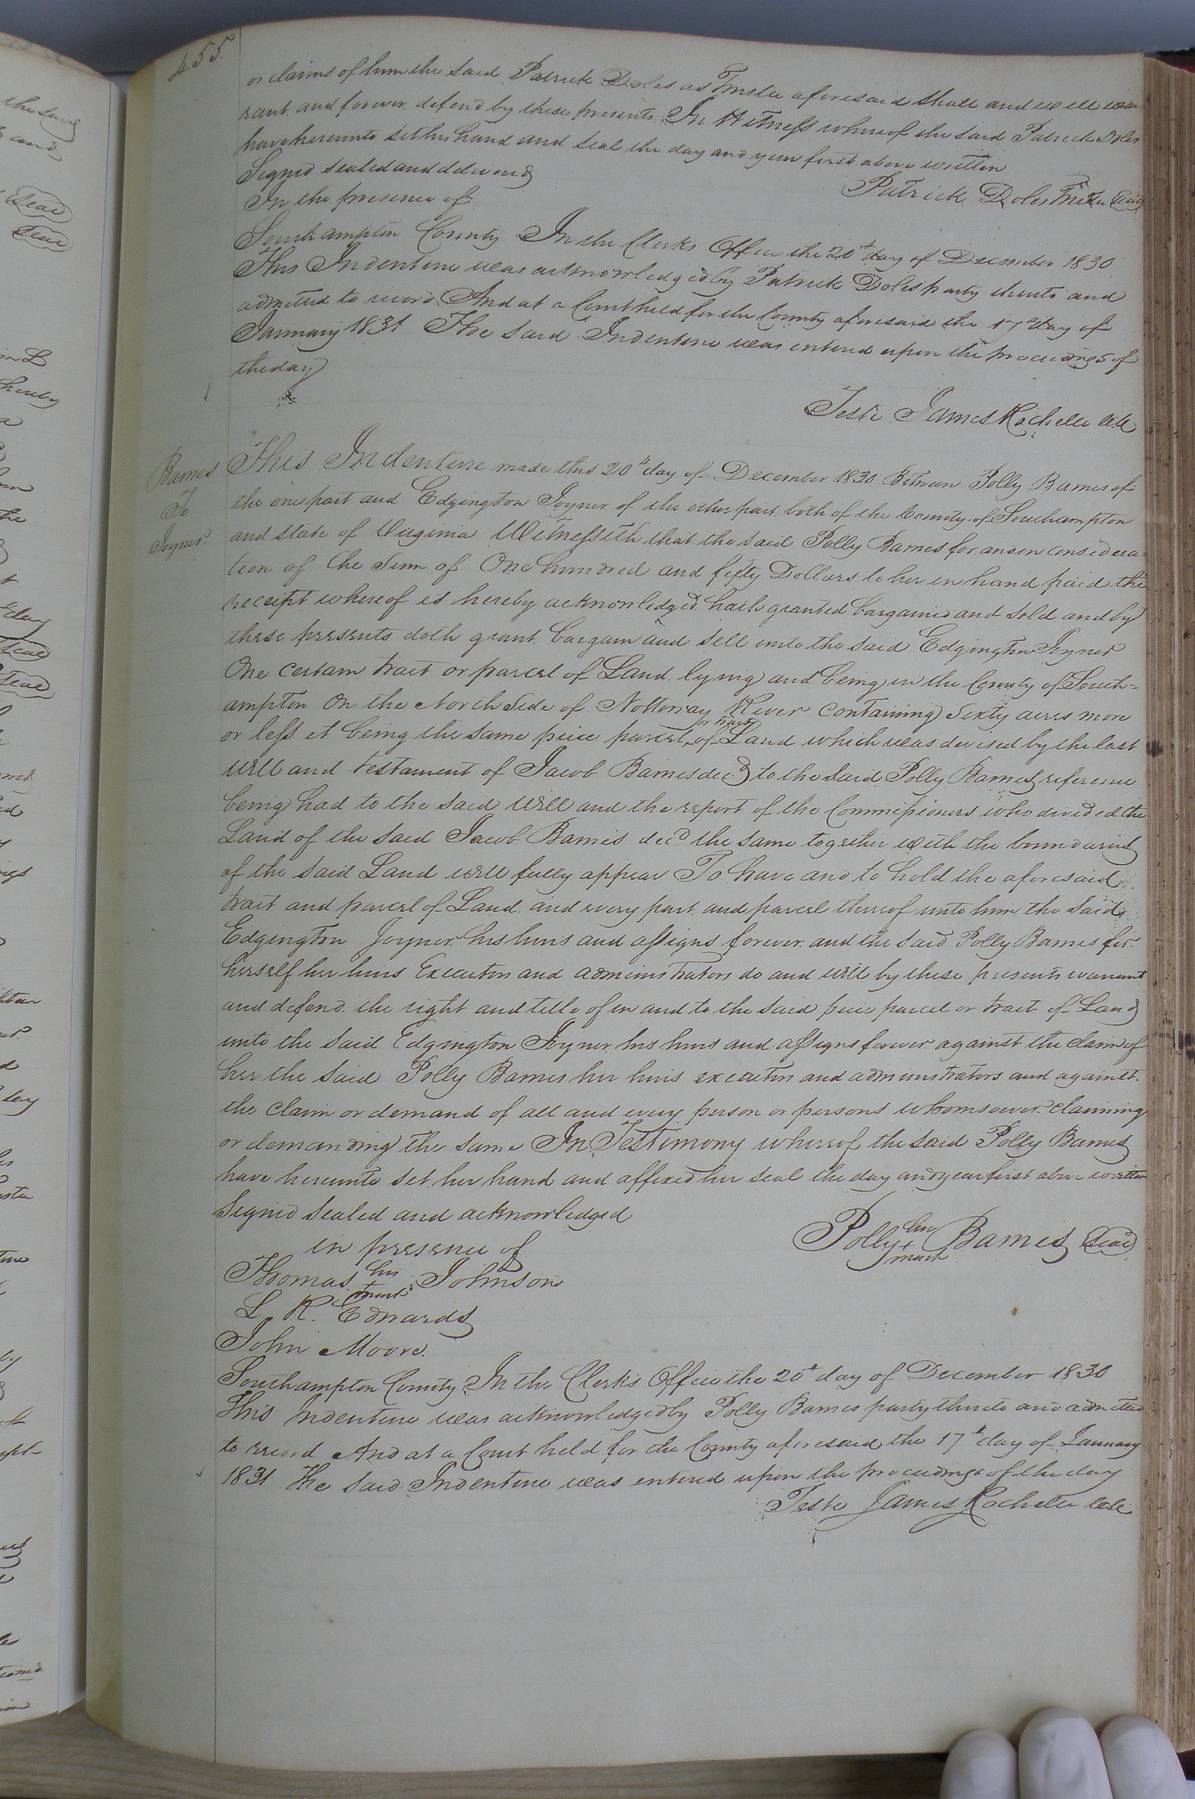 455
or claims of him the said Patrick Doles as Trustee aforesaid shall and will war
rant and forever defend by these presents. In Witness whereof the said Patrick Doles
have hereunto set his hand and seal the day and year first above written
Signed sealed and delivered
In the presence of
Patrick Doles Trustee Seal
Southampton County In the Clerks Office the 20th day of December 1830
This Indenture was acknowledged by Patrick Doles party thereto and
admitted to record And at a Court held for the County aforesaid the 17th day of
January 1831 The said Indenture was entered upon the proceedings of
the day
Teste James Rochelle
Barnes
To
Joyner
This Indenture made this 20th day of December 1830 Between Polly Barnes of
the one part and Edgington Joyner of the other part both of the County of Southampton
and State of Virginia Witnesseth that the said Polly Barnes for and in considera-
tion of the Sum of One hundred and fifty Dollars to her in hand paid the
receipt whereof is hereby acknowledged. hath granted bargained and sold and by
these presents doth grant bargain and sell unto the said Edgington Joyner
One certain tract or parcel of Land lying and being in the County of South=
ampton On the North Side of Nottoway River containing Sixty acres more
or less it being the same piece parcel or tract of Land which was devised by the last
will and testament of Jacob Barnes decd to the said Polly Barnes, reference
being had to the said Will and the report of the Commissioners who divided the
Land of the said Jacob Barnes decd the same together with the boundaries
of the said Land will fully appear To have and to hold the aforesaid
tract and parcel of Land and every part and parcel thereof unto him the said
Edgington Joyner his heirs and assigns forever. and the said Polly Barnes for
herself her heirs Executors and administrators do and will by these presents warrant
and defend the right and title of in and to the said piece parcel or tract of Land
unto the said Edgington Joyner his heirs and assigns forever against the claim of
her the said Polly Barnes her heirs executors and administrators and against
the claim or demand of all and every person or persons whomsoever claiming
or demanding the same In Testimony whereof the said Polly Barnes
have hereunto set her hand and affixed her seal the day and year first above written
Signed Sealed and acknowledged
in presence of
Polly her + mark Barnes Seal
Thomas his + mark Johnson
L. R. Edwards
John Moore.
Southampton County In the Clerk's Office the 20th day of December 1830
This Indenture was acknowledged by Polly Barnes party thereto and admitted
to record And at a Court held for the County aforesaid the 17th day of January
1831 The said Indenture was entered upon the proceedings of the day
Teste James Rochelle